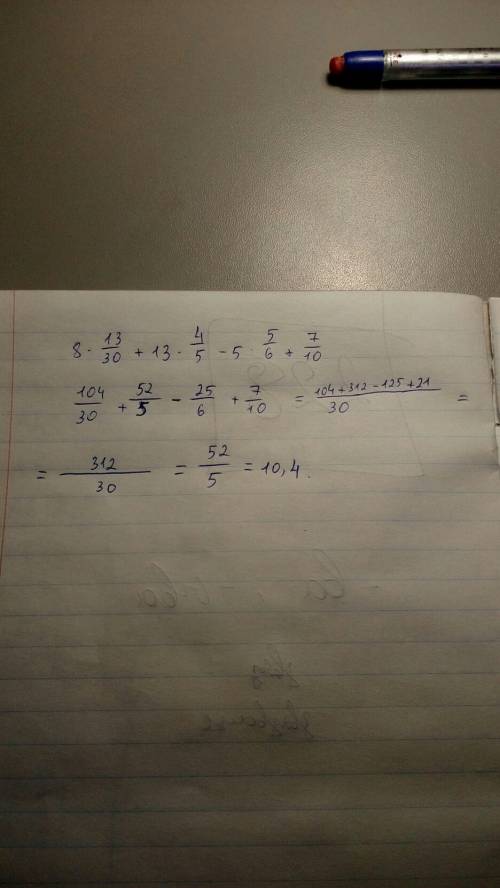 8 · 13/30 + 13 · 4/5 - 5 · 5/6 + 7/10
104/30 + 52/5 - 25/6 + 7/10 = 104+312-125+21/30 =
= 312/30 = 52/5 = 10,4.